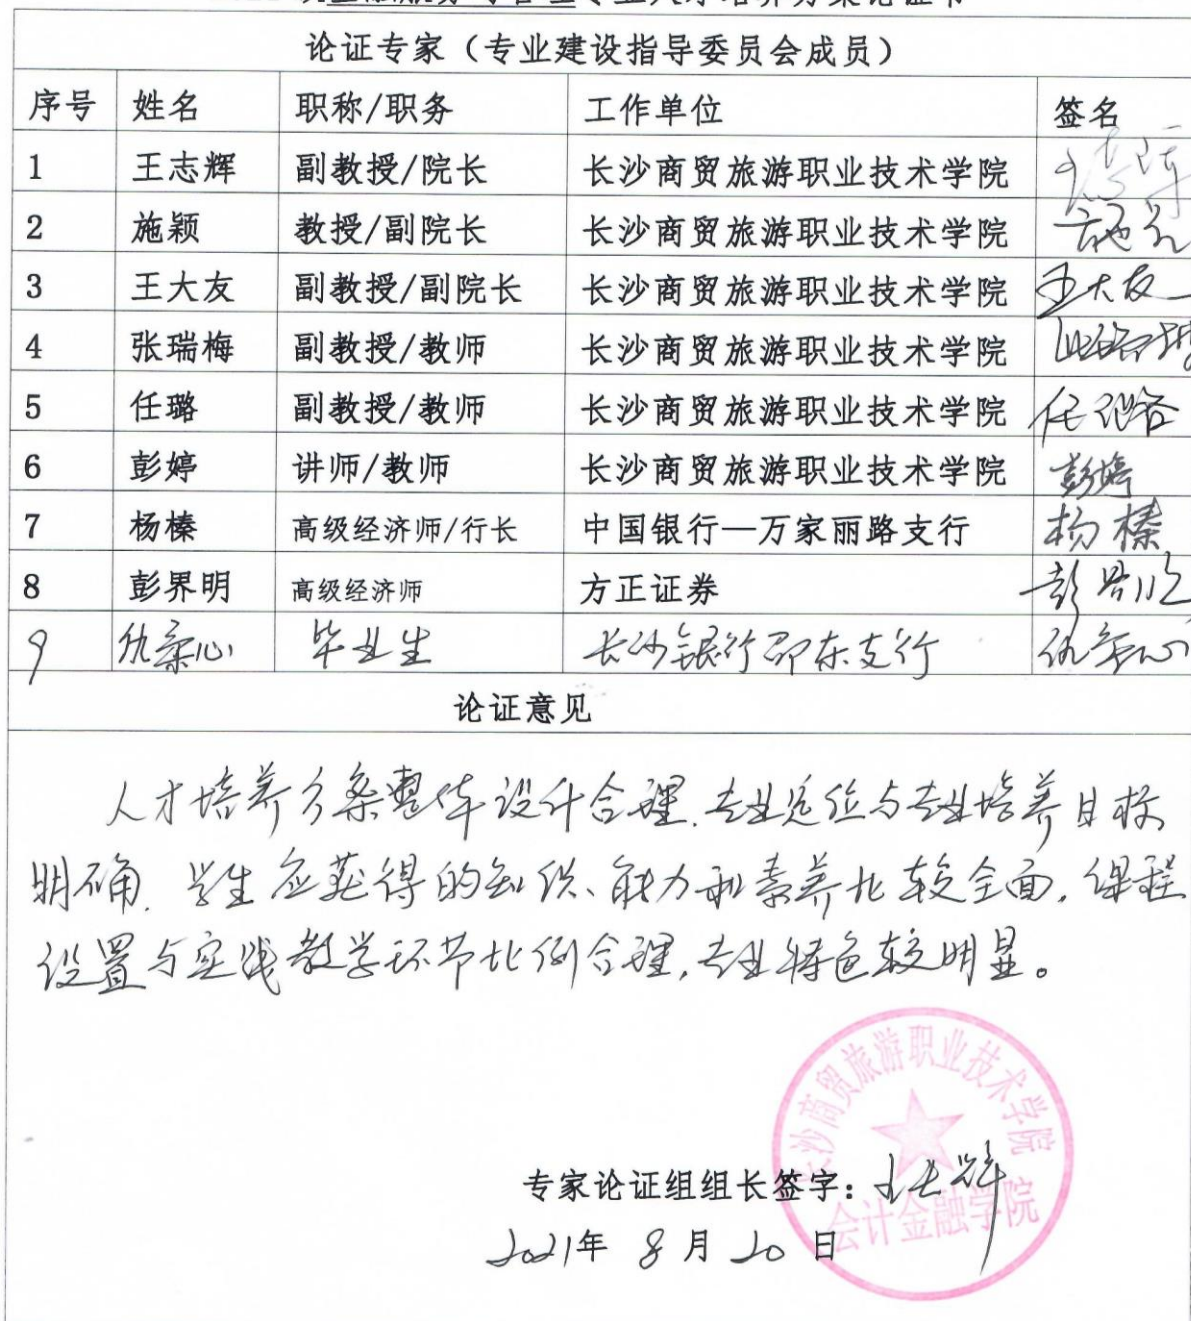 专业人才培养方案论证书
论证专家（专业建设指导委员会成员）
序号 姓名 职称/职务 工作单位 签名
1 王志辉 副教授/院长 长沙商贸旅游职业技术学院
2 施颖 教授/副院长 长沙商贸旅游职业技术学院 施颖
3 王大友 副教授/副院长 长沙商贸旅游职业技术学院 王大友
4 张瑞梅 副教授/教师 长沙商贸旅游职业技术学院 张瑞梅
5 任璐 副教授/教师 长沙商贸旅游职业技术学院 任璐
6 彭婷 讲师/教师 长沙商贸旅游职业技术学院 彭婷
7 杨榛 高级经济师/行长 中国银行—万家丽路支行 杨榛
8 彭界明 高级经济师 方正证券 彭界明
9 仇柔心 毕业生 长沙银行邵东支行 仇柔心
论证意见
人才培养方案整体设计合理.专业定位与专业培养目标
明确.学生应获得的知识、能力和素养比较全面,课程
设置与实践教学环节比例合理,专业特色较明显。
长沙商贸旅游职业技术学院
会计金融学院
专家论证组组长签字：王志辉
2021年 8月 20日